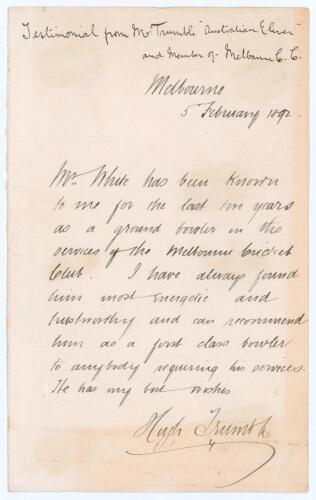 Testimonial from Mr. Trumble "Australian Eleven"
and Member of Melbourne C.C.
Melbourne
5 February 1892.
Mr White has been known
to me for the last two years
as a ground bowler in the
services of the Melbourne Cricket
Club. I have always found
him most energetic and
trustworthy and can recommend
him as a first class bowler
to anybody requiring his services.
He has my best wishes.
Hugh Trumble